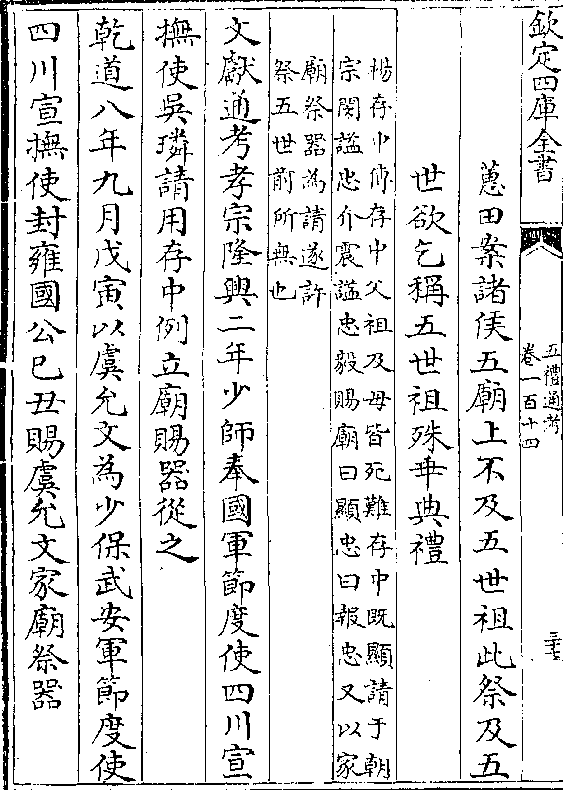 欽定四庫全書
五禮通考
卷一百十四
三十七
蕙田案諸侯五廟上不及五世祖此祭及五
世欲乞稱五世祖殊乖典禮
楊存中傳存中父祖及母皆死難存中既顯請于朝
宗閔諡忠介震諡忠毅賜廟曰顯忠曰報忠又以家
廟祭器為請遂許
祭五世前所無也
文獻通考孝宗隆興二年少師奉國軍節度使四川宣
撫使吳璘請用存中例立廟賜器從之
乾道八年九月戊寅以虞允文為少保武安軍節度使
四川宣撫使封雍國公己丑賜虞允文家廟祭器